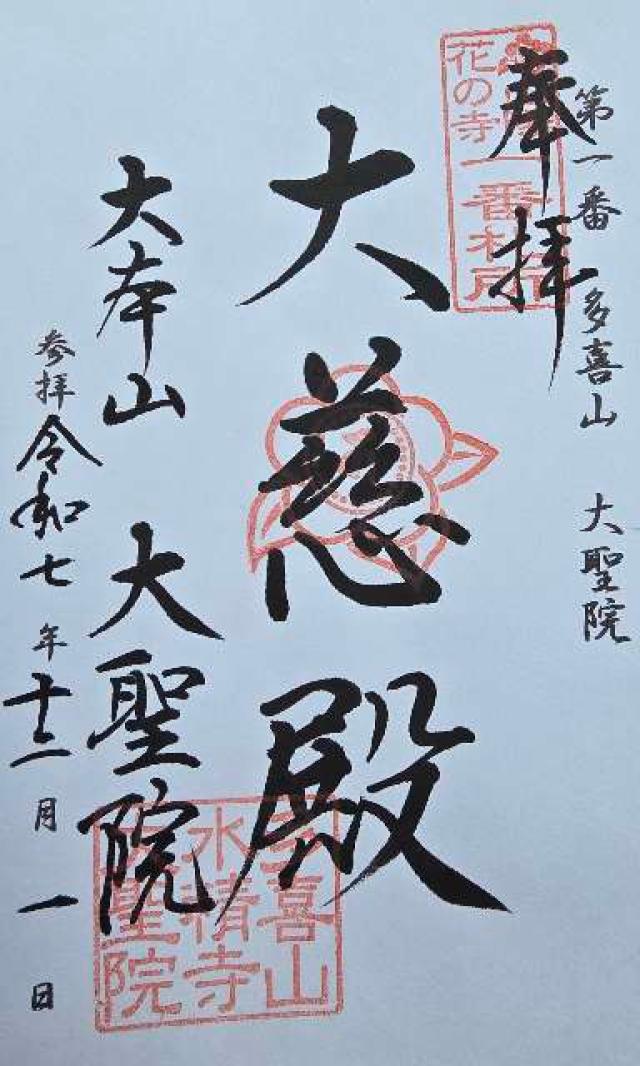 第一番 多喜山 大聖院
奉拝
花の寺
一番札所
大慈殿
大本山 大聖院
参拝 令和七年十二月一日
多喜山
水精寺
大聖院